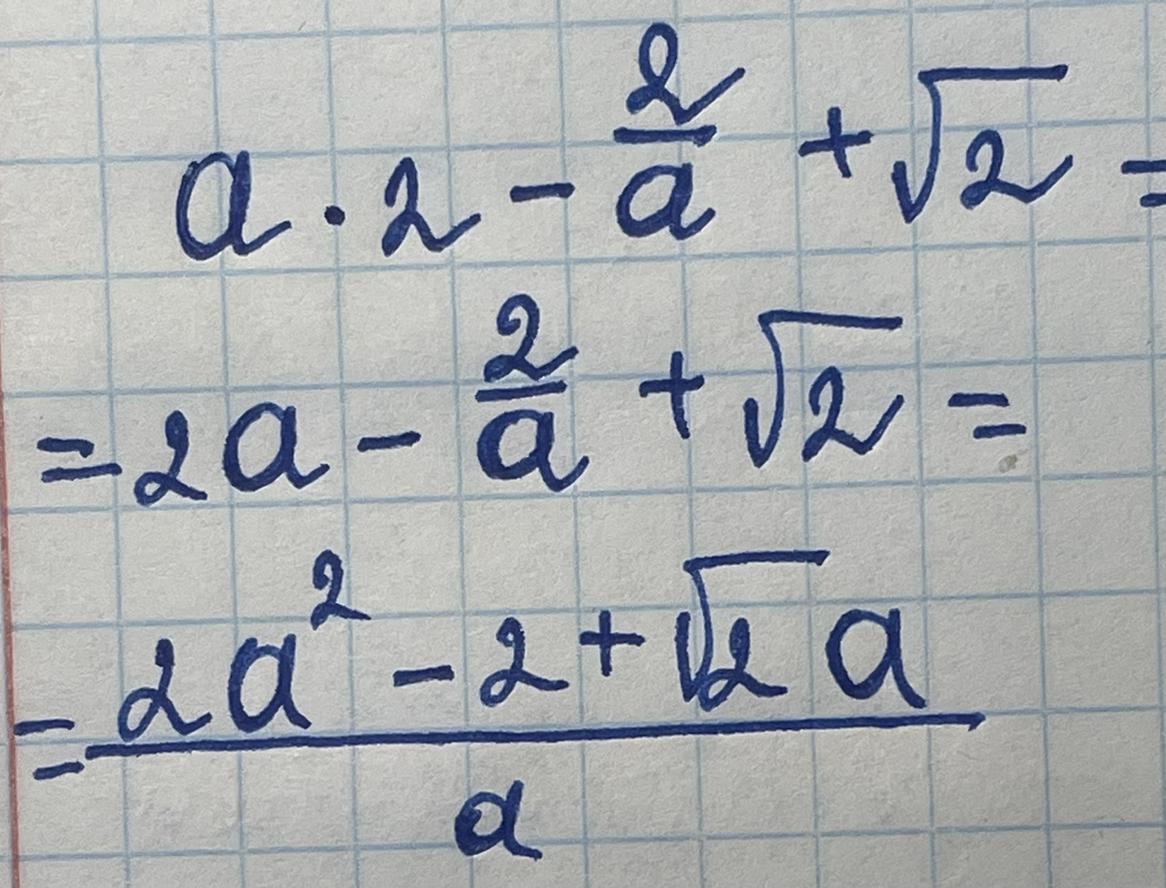 a · 2 - 2/a + √2 =
= 2a - 2/a + √2 =
= (2a² - 2 + √2 a)/a